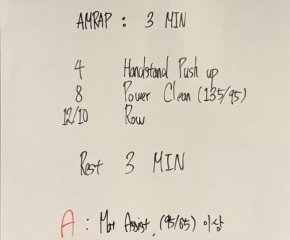 AMRAP : 3 MIN
4 Handstand Push up
8 Power Clean (135/95)
12/10 Row
Rest 3 MIN
A : Mat Assist, (95/65) 이상